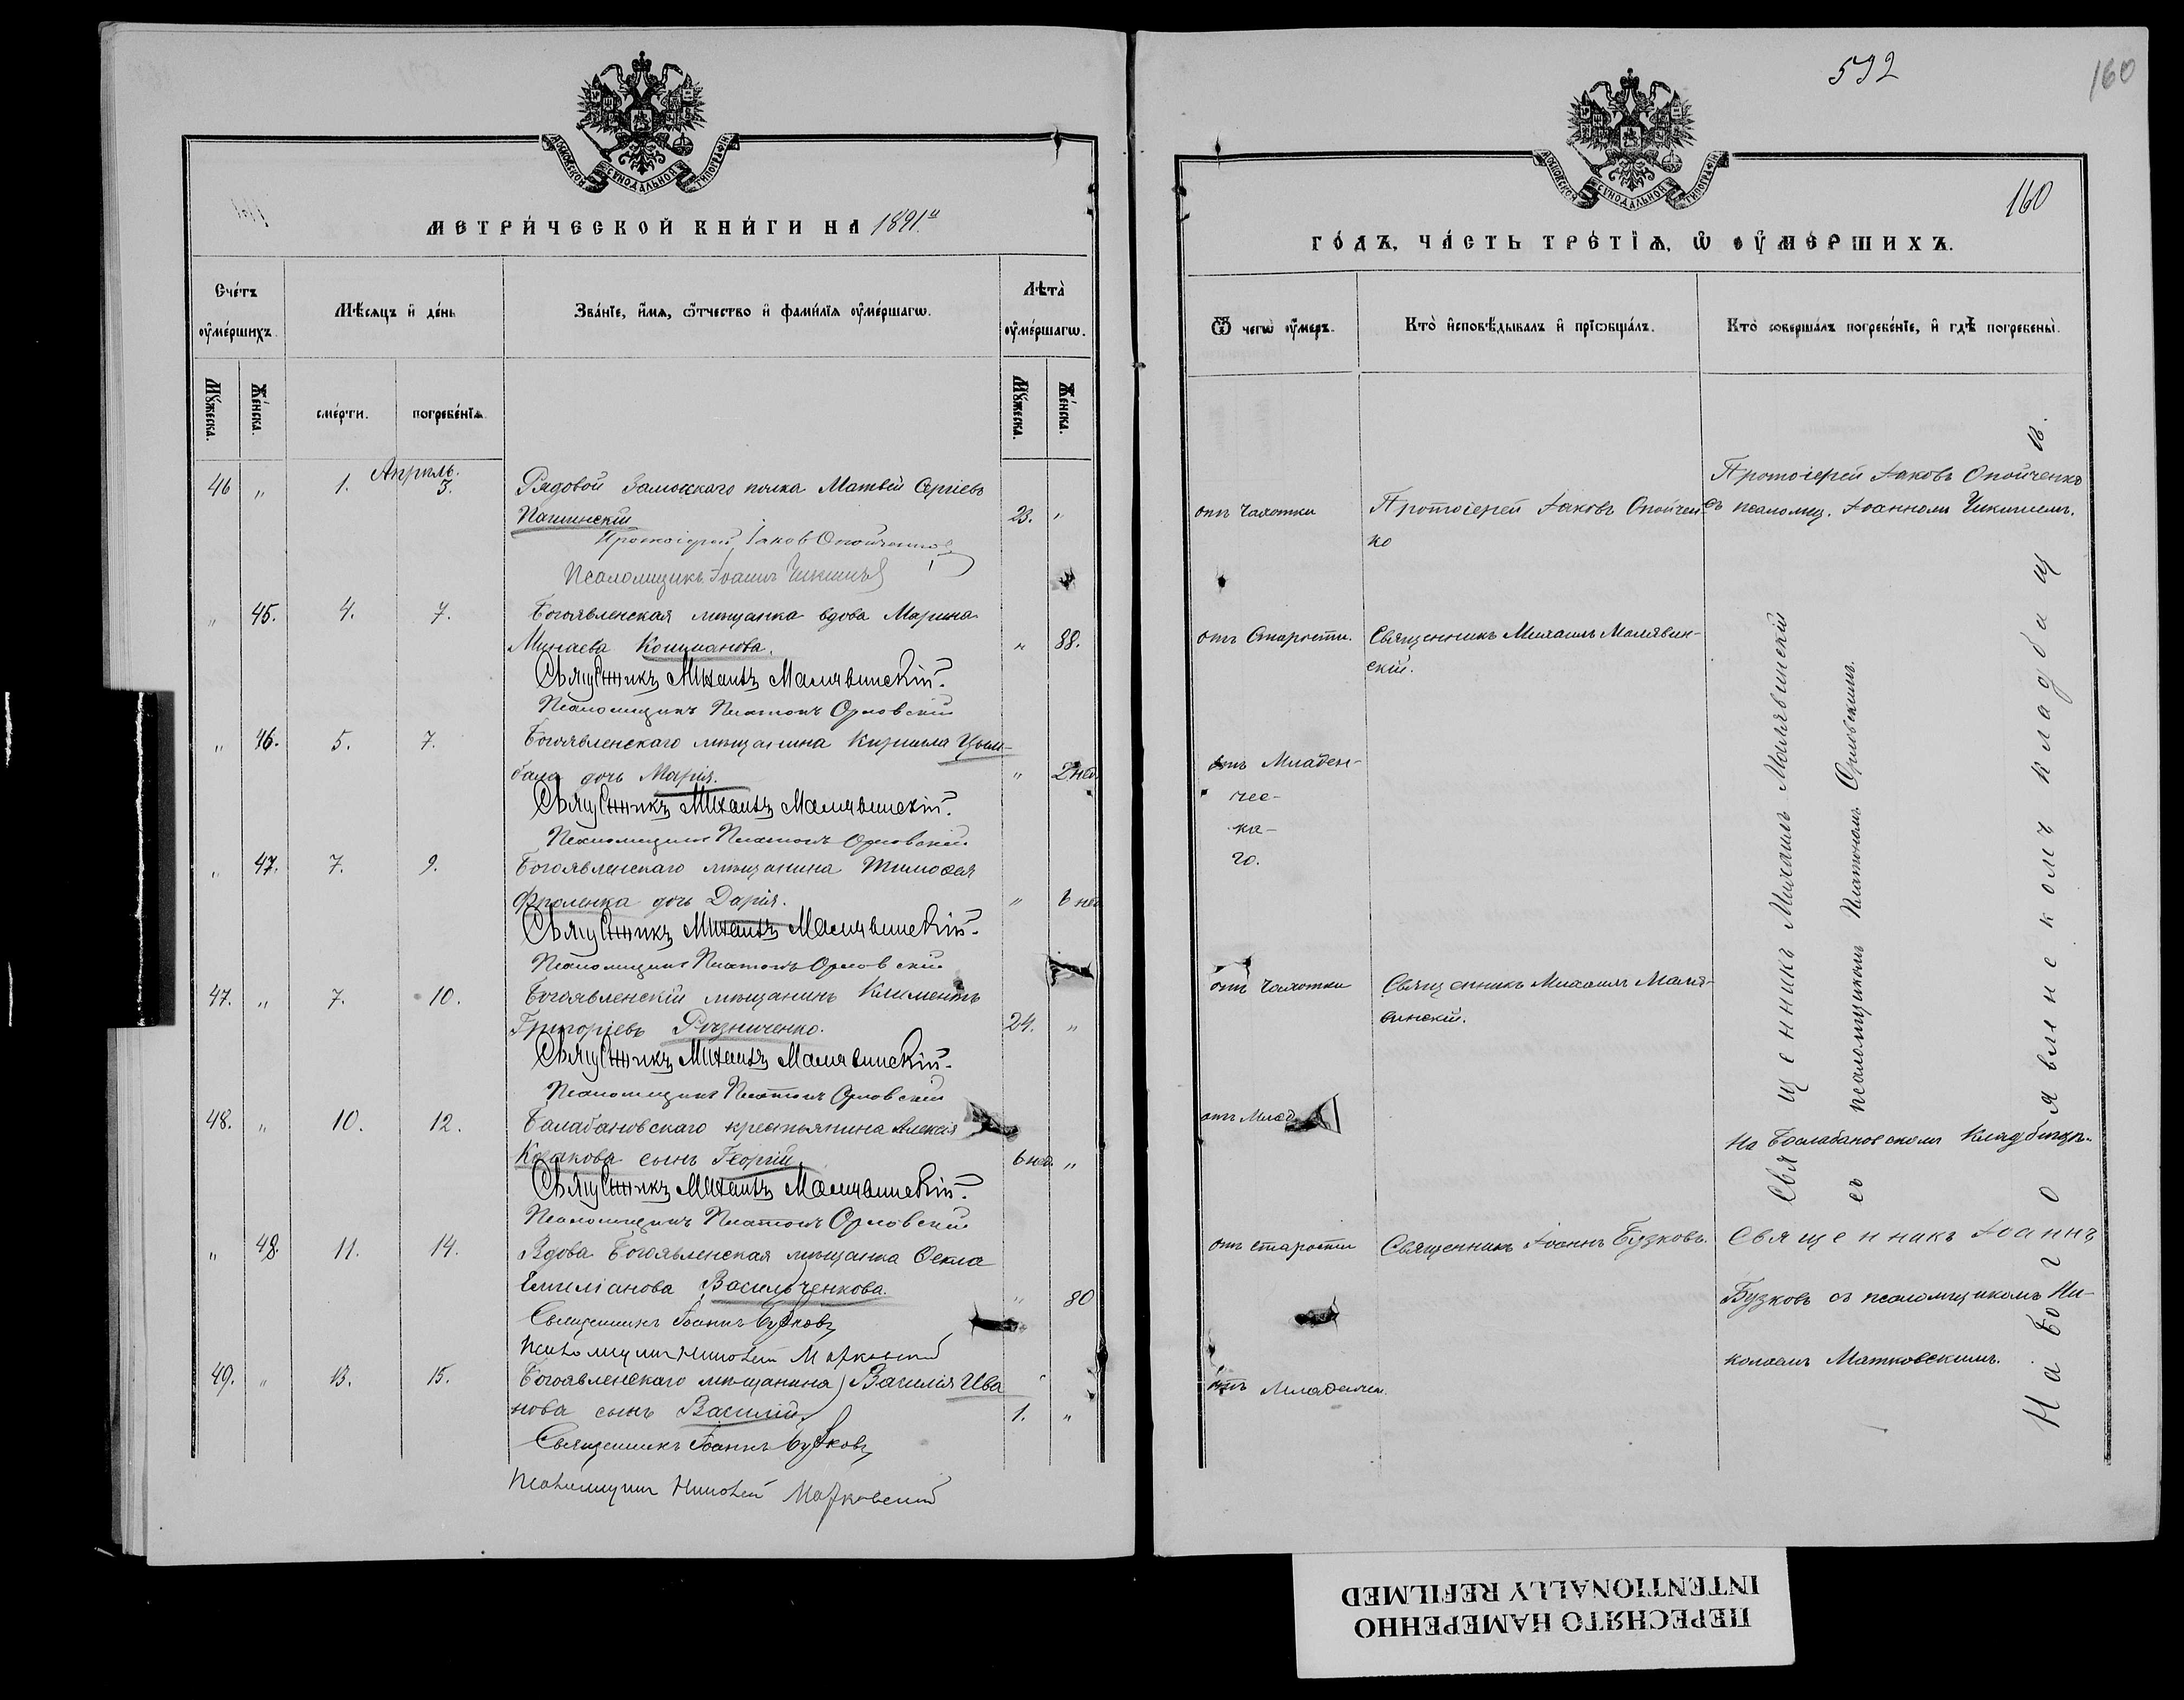 МОСКОВСКОЙ СѴНОДАЛЬНОЙ ТИПОГРАФІИ
МЕТРИ́ЧЕСКОЙ КНИ́ГИ НА 1891й
Сче́тъ ᲂу҆ме́ршихъ.
Мѣ́сяцъ и҆ де́нь
Зва́нїе, и҆́мѧ, ѻ҆́тчество и҆ фами́лїѧ ᲂу҆ме́ршагѡ.
Лѣта̀ ᲂу҆ме́ршагѡ.
Мꙋ́жеска.
Же́нска.
сме́рти.
погребе́нїѧ.
Мꙋ́жеска.
Же́нска.
Апрѣль.
46 „ 1. 3. Рядовой Замоскаго полка Матвѣй Сергіевъ
Пашинскій 23. „
Протоіерей Іаковъ Опойченко
Псаломщикъ Іоаннъ Чикишъ
„ 45. 4. 7. Богоявленская мѣщанка вдова Марина
Минаева Кошманова. „ 88.
Священникъ Михаилъ Малявинскій.
Псаломщикъ Платонъ Орловскій
„ 46. 5. 7. Богоявленскаго мѣщанина Кирилла Цым-
бала дочь Марія. „ 2 нед.
Священникъ Михаилъ Малявинскій.
Псаломщикъ Платонъ Орловскій
„ 47. 7. 9. Богоявленскаго мѣщанина Тимоѳея
Фроленка дочь Дарія. „ 6 нед
Священникъ Михаилъ Малявинскій.
Псаломщикъ Платонъ Орловскій
47. „ 7. 10. Богоявленскій мѣщанинъ Климентъ
Григоріевъ Рѣзниченко. 24. „
Священникъ Михаилъ Малявинскій.
Псаломщикъ Платонъ Орловскій
48. „ 10. 12. Балабановскаго крестьянина Алексія
Козакова сынъ Георгій. 6 нед. „
Священникъ Михаилъ Малявинскій.
Псаломщикъ Платонъ Орловскій
„ 48. 11. 14. Вдова Богоявленская мѣщанка Ѳекла
Емиліанова Васильченкова. „ 80
Священникъ Іоаннъ Бузковъ
Псаломщикъ Николай Матковскій
49. „ 13. 15. Богоявленскаго мѣщанина Василія Ива
нова сынъ Василій. 1. „
Священникъ Іоаннъ Бузковъ
Псаломщикъ Николай Матковскій
592
160
160
МОСКОВСКОЙ СѴНОДАЛЬНОЙ ТИПОГРАФІИ
ГО́ДЪ, ЧА́СТЬ ТРЕ́ТЇѦ, Ѡ҆ ОУ҆МЕ́РШИХЪ.
Ѿ чегѡ̀ ᲂу҆́меръ.
Кто̀ и҆сповѣ́дывалъ и҆ прїѡбща́лъ.
Кто̀ соверша́лъ погребе́нїе, и҆ гдѣ̀ погребены̀.
отъ Чахотки
Протоіерей Іаковъ Опойчен
ко
Протоіерей Іаковъ Опойченко
съ псаломщ. Іоанномъ Чикишемъ.
отъ Старости. Священникъ Михаилъ Малявин-
скій.
отъ Младен-
чес-
ка-
го.
отъ Чахотки Священникъ Михаилъ Маля-
винскій.
отъ Млад
Священникъ Михаилъ Малявинскій
съ псаломщикомъ Платономъ Орловскимъ.
На Богоявленскомъ кладбищѣ.
На Балабановскомъ Кладбищѣ.
отъ старости Священникъ Іоаннъ Бузковъ. Священникъ Іоаннъ
Бузковъ съ псаломщикомъ Ни-
колаемъ Матковскимъ.
отъ Младенч.
ПЕРЕСНЯТО НАМЕРЕННО
INTENTIONALLY REFILMED